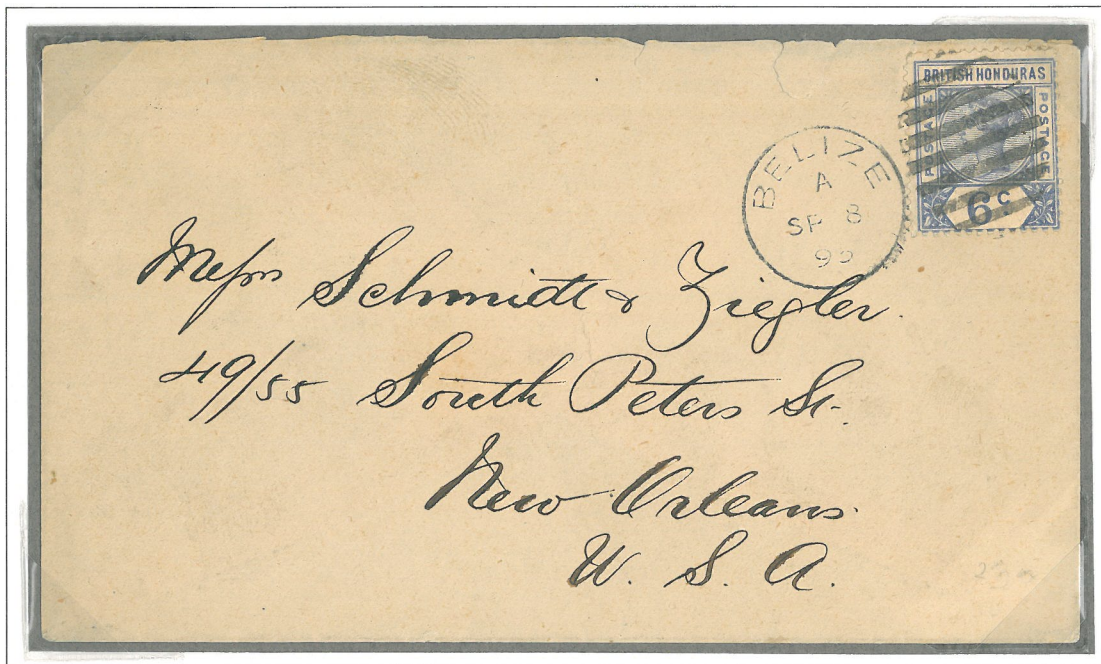 BRITISH HONDURAS
POSTAGE
POSTAGE
6c
BELIZE
A
SP 8
Messrs Schmidt & Ziegler.
49/55 South Peters St.
New Orleans.
U. S. A.